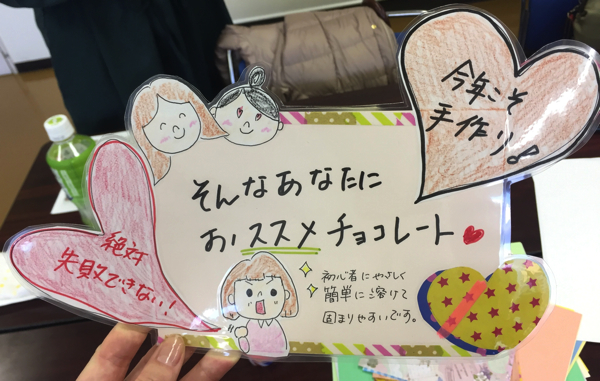 今年こそ
手作り!
そんなあなたに
おススメチョコレート
絶対
失敗できない!
初心者にやさしく
簡単に溶けて
固まりやすいです。